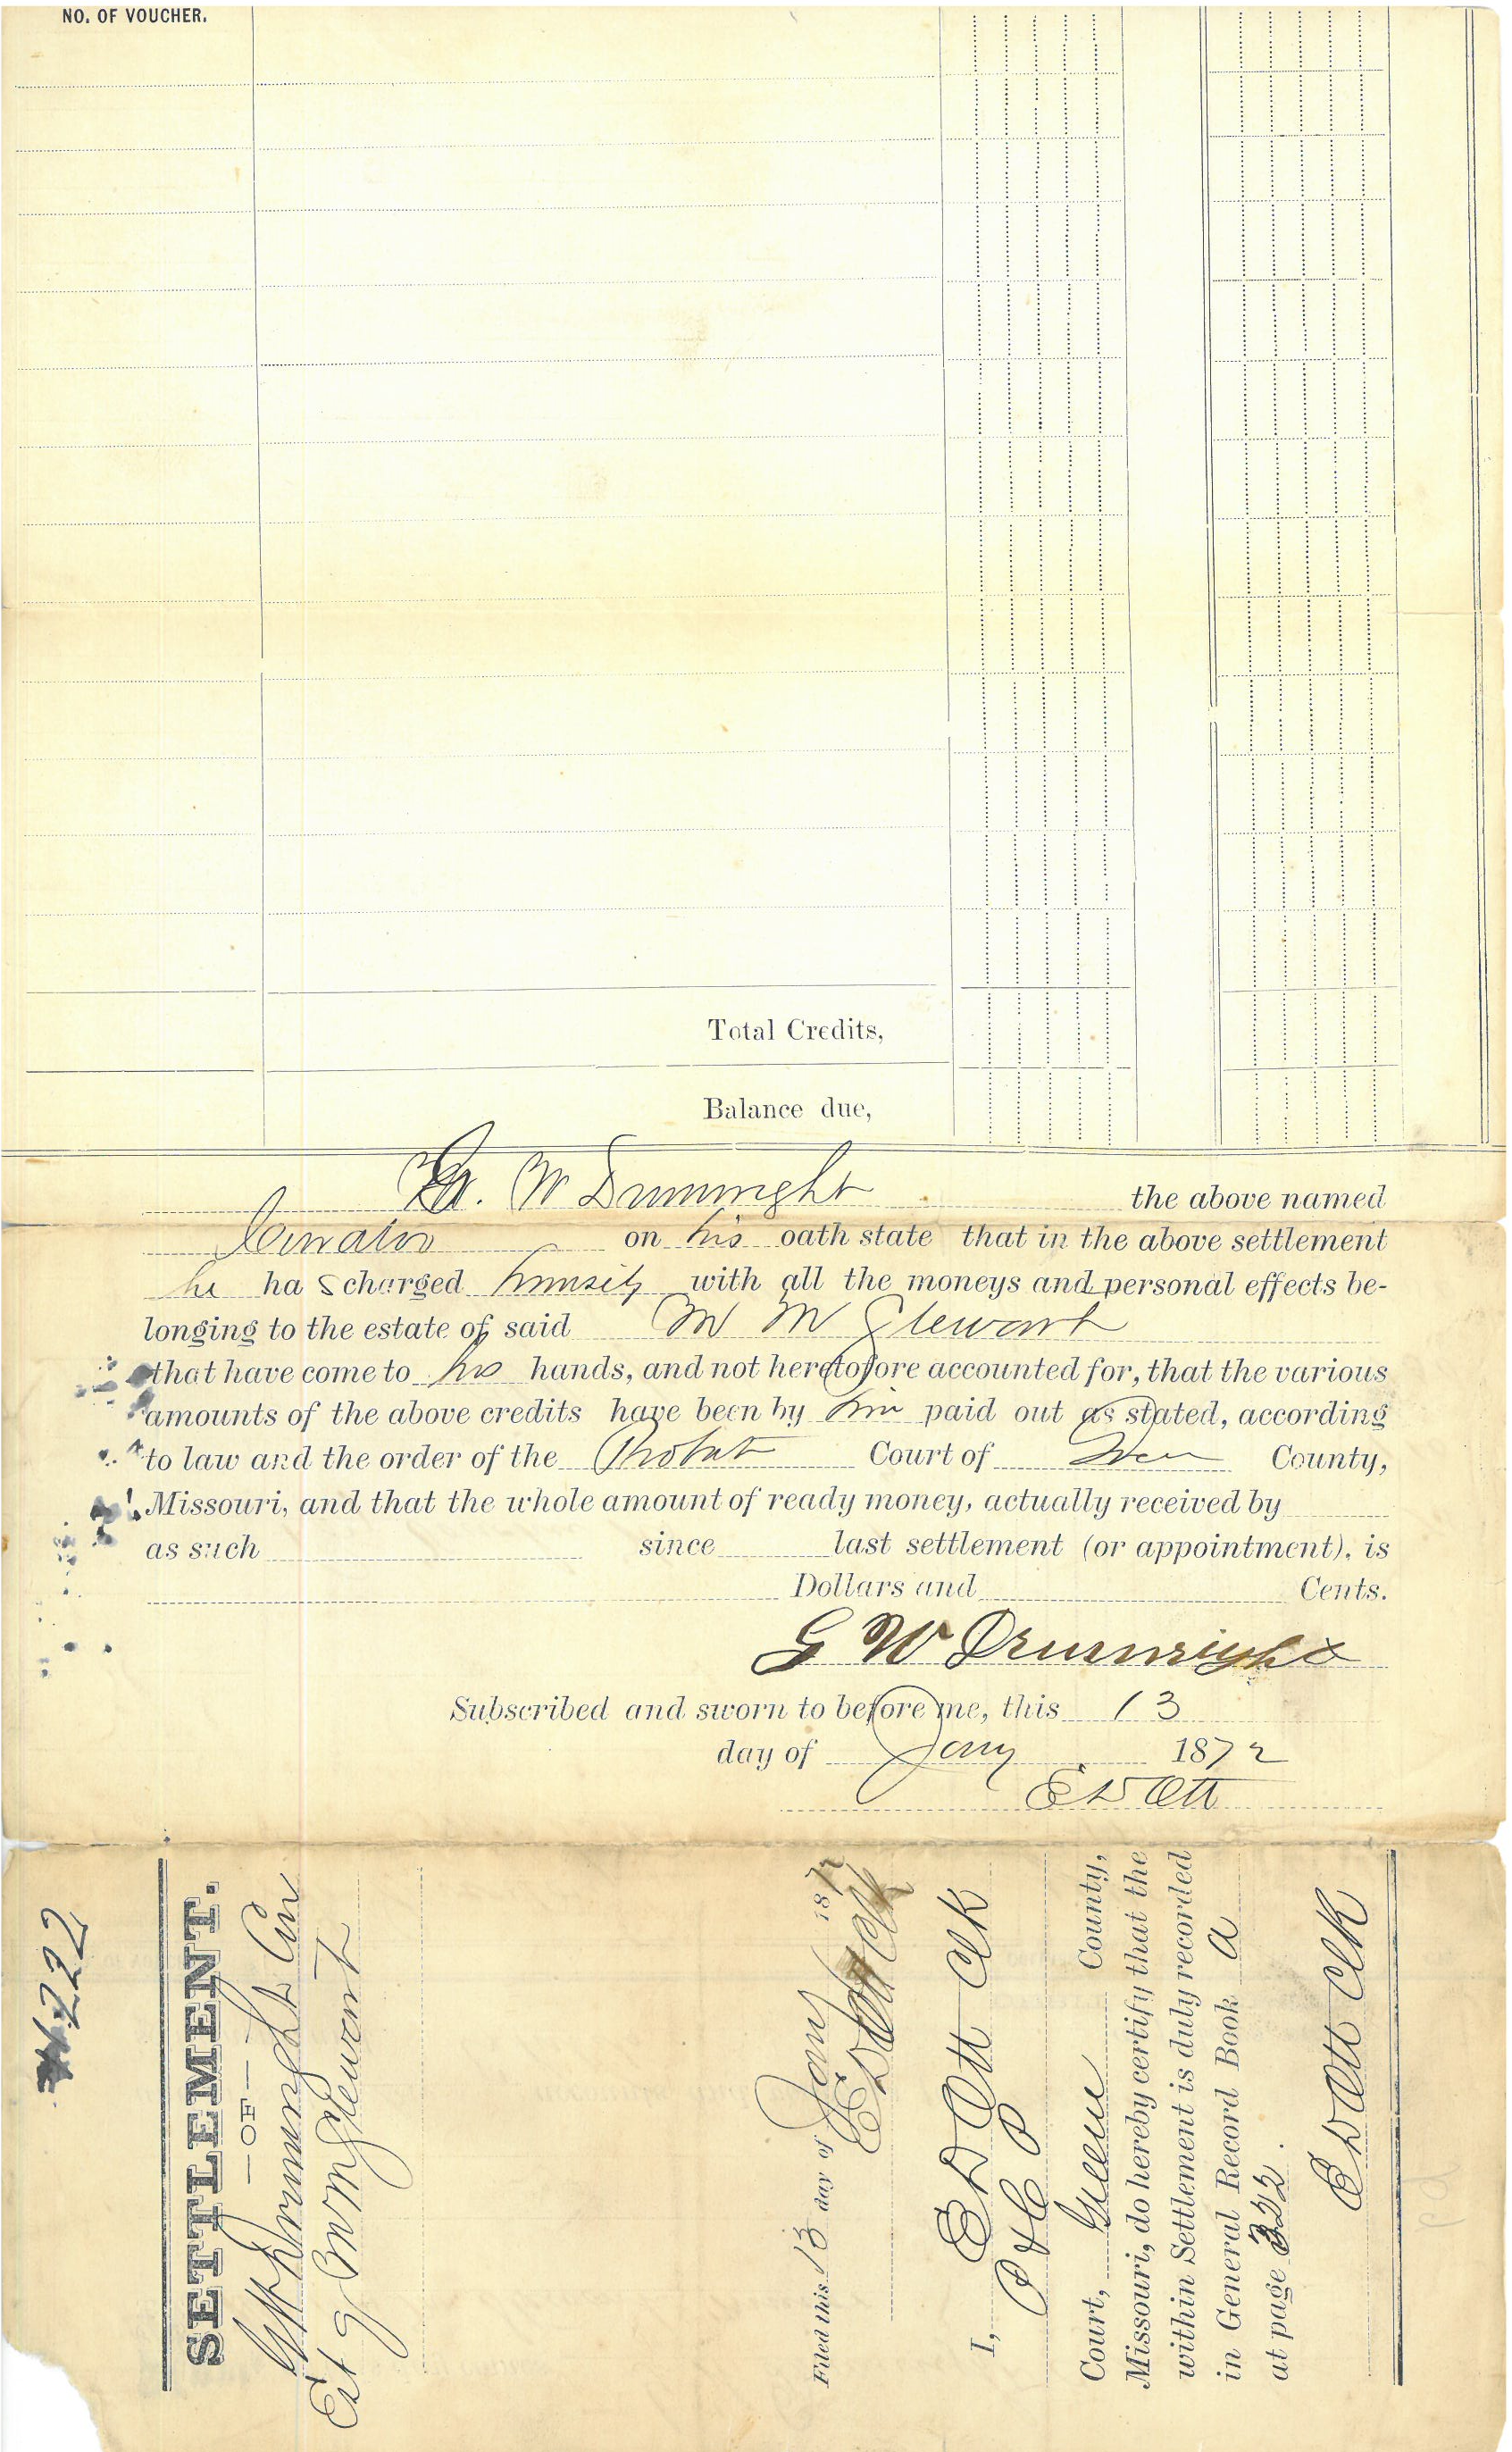 NO. OF VOUCHER.
Total Credits,
Balance due,
W Drumright the above named
Curator on his oath state that in the above settlement
he ha s charged himself with all the moneys and personal effects be-
longing to the estate of said M M Stewart
that have come to his hands, and not heretofore accounted for, that the various
amounts of the above credits have been by him paid out as stated, according
to law and the order of the Probat Court of County,
Missouri, and that the whole amount of ready money, actually received by
as such since last settlement (or appointment), is
Dollars and Cents.
G W Drumright
Subscribed and sworn to before me, this 13
day of Jany 1872
E D Ott
222
SETTLEMENT.
—OF—
G W Drumright Cur
Est of M M Stewart
Filed this 13 day of Jany 1872
E D Ott Clk
I, E D Ott Clk
P & C P
Court, Green County,
Missouri, do hereby certify that the
within Settlement is duly recorded
in General Record Book A
at page 322.
E D Ott Clk
pd